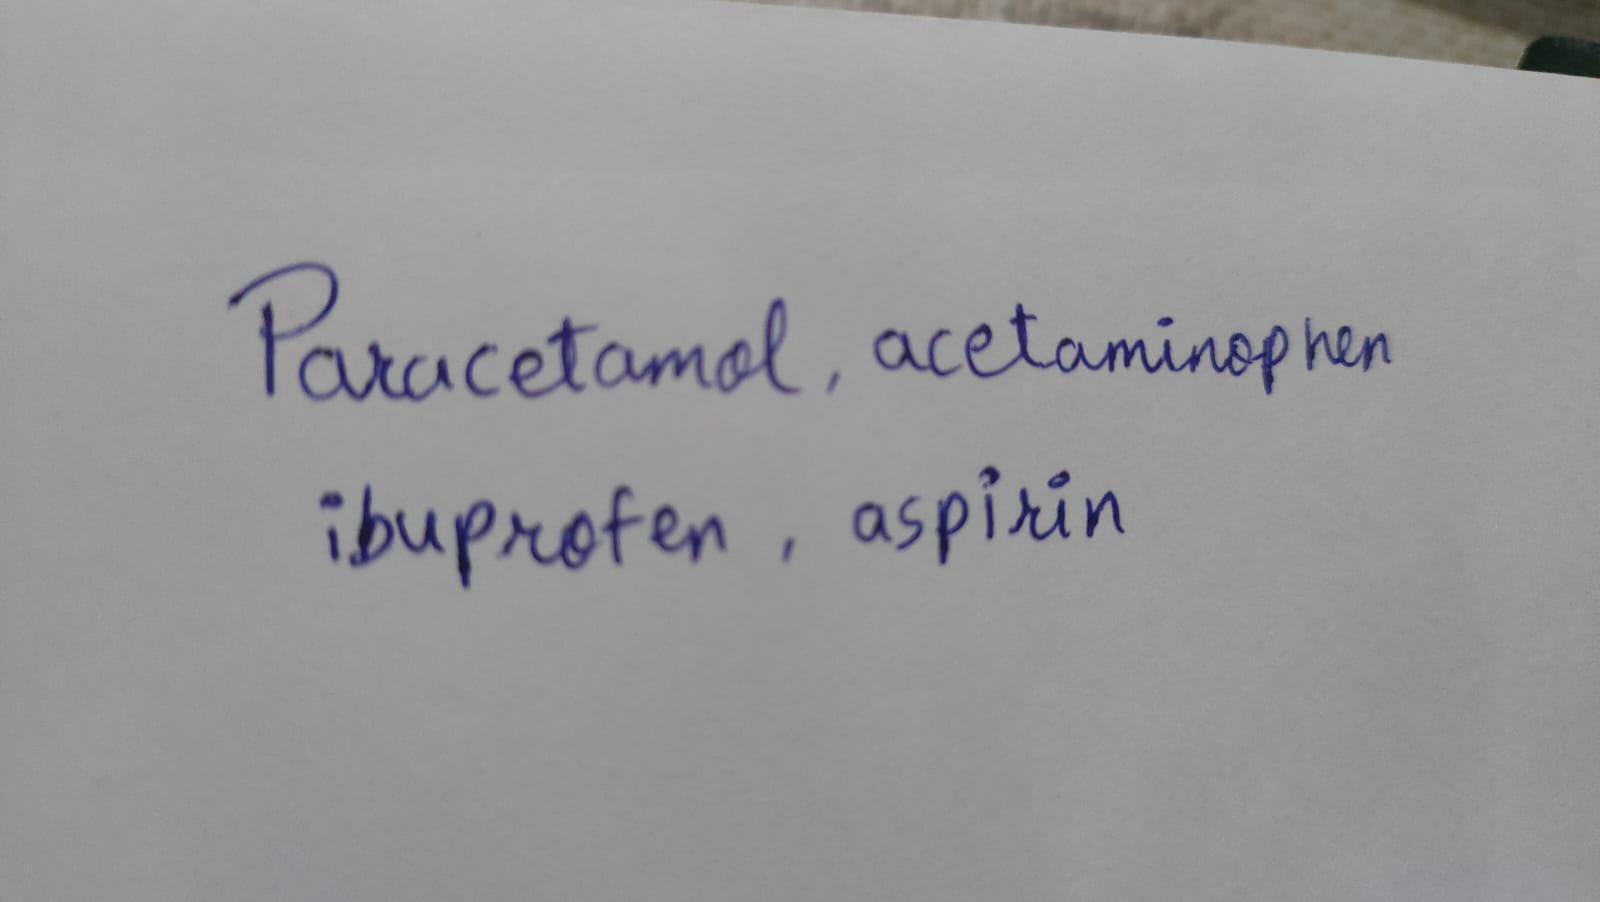 Paracetamol, acetaminophen
ibuprofen, aspirin